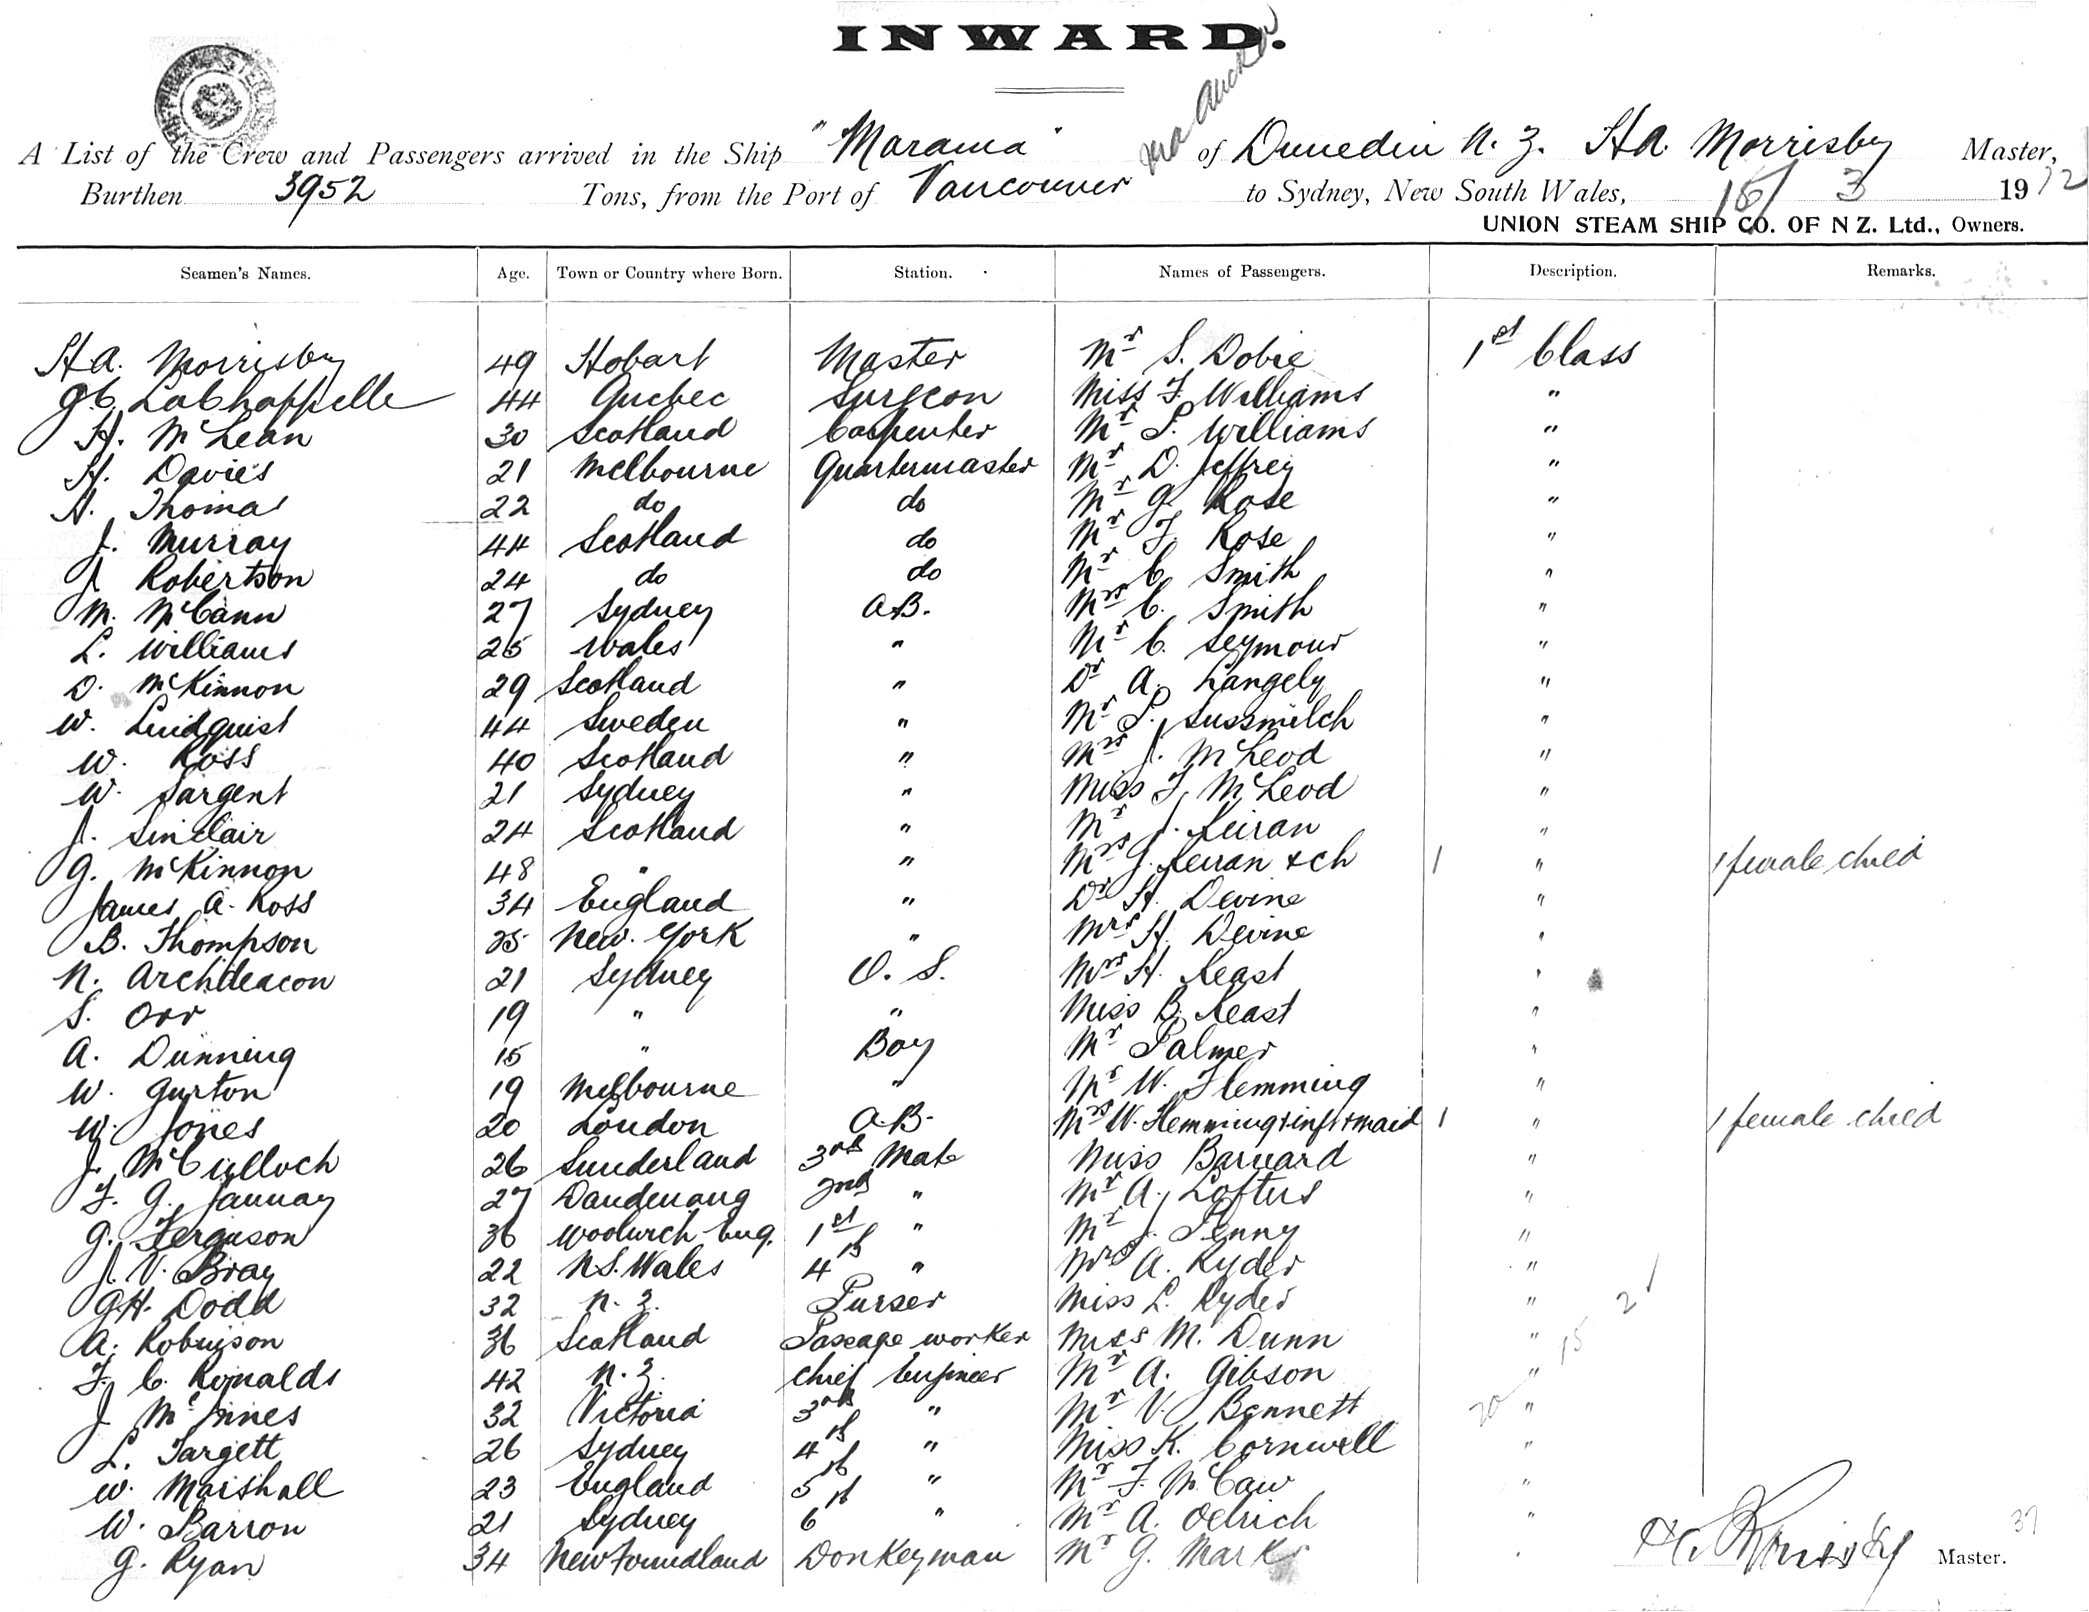 INWARD.
via Auckland
A List of the Crew and Passengers arrived in the Ship "Marama" of Dunedin N.Z. H.A. Morrisby Master,
Burthen 3952 Tons, from the Port of Vancouver to Sydney, New South Wales, 16/3 1912
UNION STEAM SHIP CO. OF N Z. Ltd., Owners.
Seamen's Names. Age. Town or Country where Born. Station. Names of Passengers. Description. Remarks.
H.A. Morrisby 49 Hobart Master Mr S. Dobie 1st Class
G.C. LaChappelle 44 Quebec Surgeon Miss F. Williams "
H. McLean 30 Scotland Carpenter Mr P. Williams "
H. Davies 21 Melbourne Quartermaster Mr D. Jeffrey "
A. Thomas 22 do do Mr G. Rose "
J. Murray 44 Scotland do Mr F. Rose "
J Robertson 24 do do Mr C. Smith "
M. McCann 27 Sydney A.B. Mrs C. Smith "
L. Williams 25 Wales " Mr C. Seymour "
D. McKinnon 29 Scotland " Dr A. Langely "
W. Lindquist 44 Sweden " Mr P. Sussmilch "
W. Ross 40 Scotland " Mrs J. McLeod "
W. Sargent 21 Sydney " Miss F. McLeod "
J. Sinclair 24 Scotland " Mr J. "
G. McKinnon 48 " " Mrs J. + ch 1 " 1 female child
James A. Ross 34 England " Dr H. Devine "
B. Thompson 25 New. York " Mrs H. Devine "
N. Archdeacon 21 Sydney O.S. Mrs H. Keast "
S. Orr 19 " " Miss B. Keast "
A. Dunning 15 " Boy Mr Palmer "
W. Gurton 19 Melbourne " Mr W. Flemming "
W. Jones 20 London A.B. Mrs W. Flemming + inft + maid 1 " 1 female child
J. McCulloch 26 Sunderland 3rd Mate Miss Barnard "
F. G. Jaunay 27 Dandenong 2nd " Mr A. Loftus "
G. Ferguson 36 Woolwich Eng. 1st " Mr J. Penny "
J. V. Bray 22 N.S. Wales 4th " Mrs A. Ryder "
G.H. Dodd 32 N.Z. Purser Miss L. Ryder " 2 1
A. Robinson 36 Scotland Passage worker Miss M. Dunn " 15
F. C. Ronalds 42 N.Z. Chief Engineer Mr A. Gibson "
J McInnes 32 Victoria 3rd " Mr V. Bennett 20 "
L. Targett 26 Sydney 4th " Miss K. Cornwell "
W. Marshall 23 England 5th " Mr F. McCaw "
W. Barron 21 Sydney 6th " Mr A. Oelrich " 37
G. Ryan 34 Newfoundland Donkeyman Mr G. Marks
H.A. Morrisby Master.